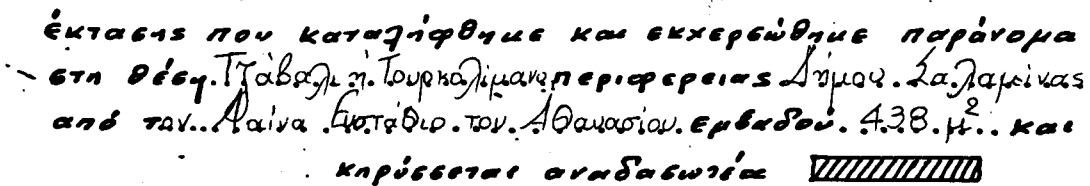 έκτασης που καταλήφθηκε και εκχερσώθηκε παράνομα
στη θέση Τζάβαλι ή Τουρκολίμανο περιφερειας Δήμου Σαλαμίνας
από τον Λαίνα Ευστάθιο του Αθανασίου εμβαδού 438 μ² και
κηρύσσεται αναδασωτέα